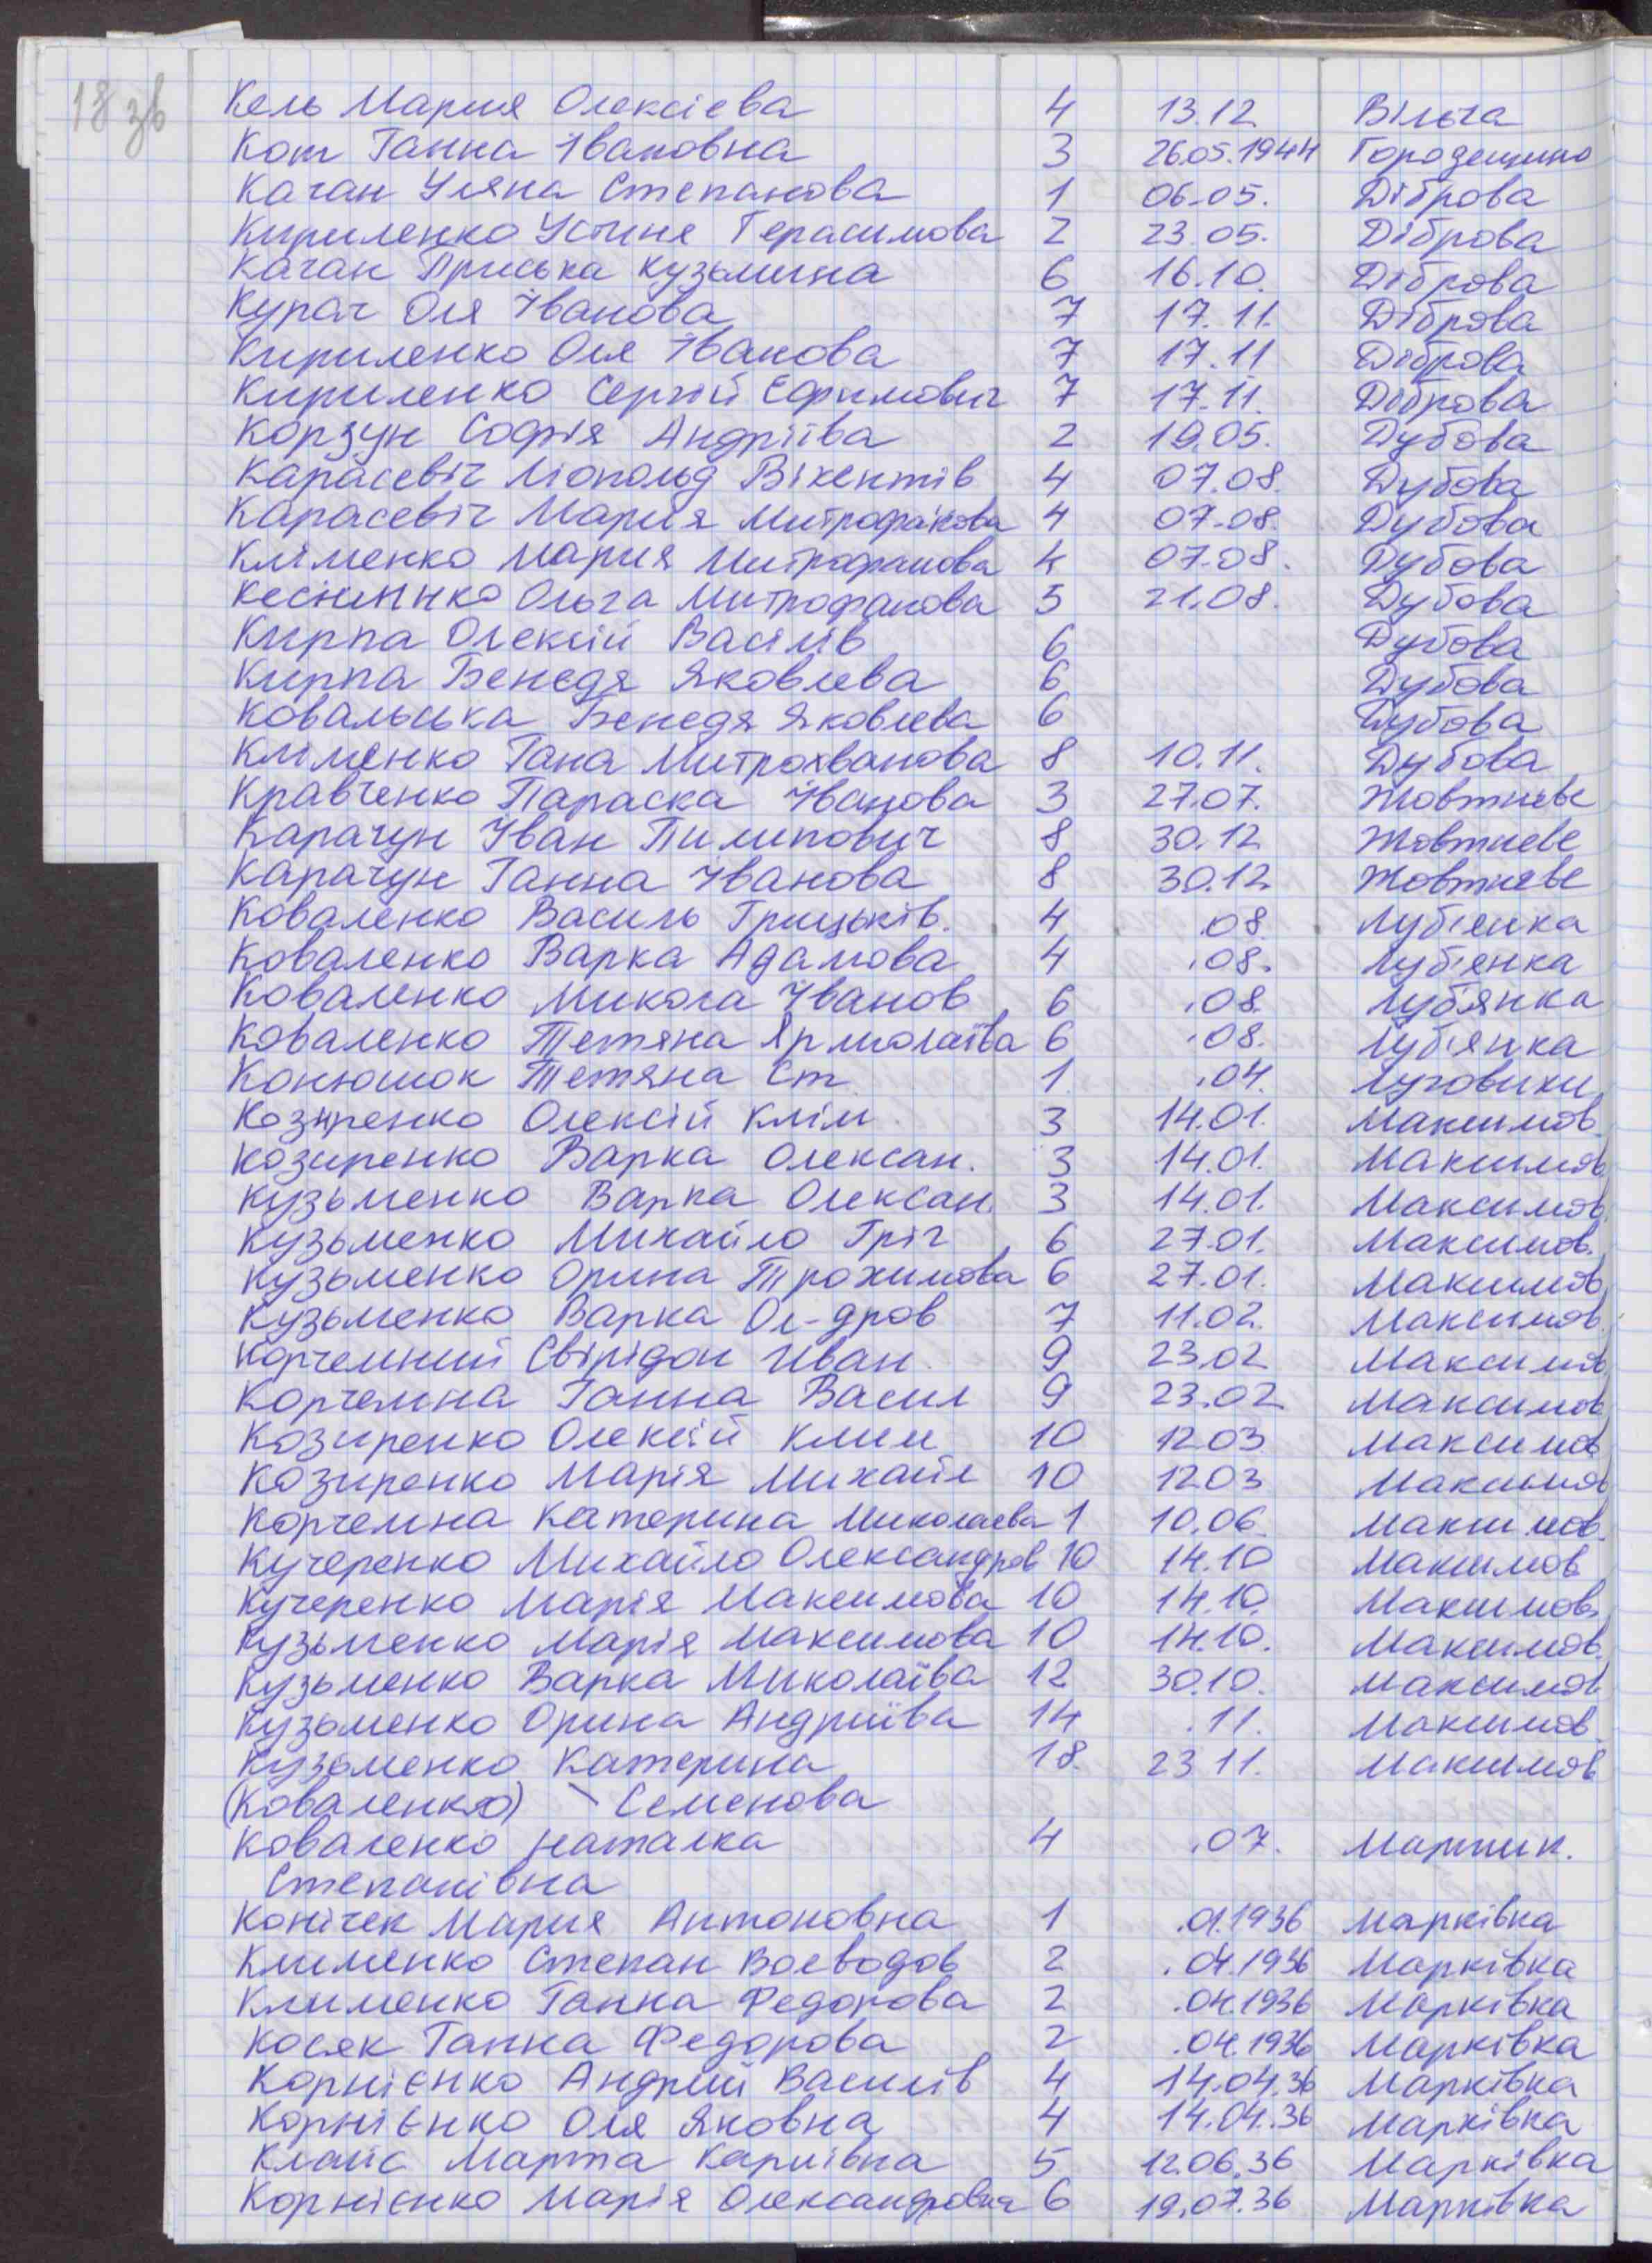 18 зв
Кель Мария Олексієва 4 13.12 Вільча
Кот Ганна Івановна 3 26.05.1944 Городещино
Качан Уляна Степанова 1 06.05. Діброва
Кириленко Устине Герасимова 2 23.05. Діброва
Качан Приська Кузьмина 6 16.10. Діброва
Курач Оля Іванова 7 17.11. Діброва
Кириленко Оля Іванова 7 17.11 Діброва
Кириленко Сергій Єфимович 7 17.11. Діброва
Корзун Софія Андріїва 2 10.05. Дубова
Карасевіч Ліопольд Вікентів 4 07.08. Дубова
Карасевіч Мария Митрофанова 4 07.08. Дубова
Кліменко Мария Митрофанова 4 07.08. Дубова
Ольга Митрофанова 5 21.08. Дубова
Кирпа Олексій Васілів 6 Дубова
Кирпа Бенедя Яковлева 6 Дубова
Ковальська Бенедя Яковлева 6 Дубова
Кліменко Гана Митрохванова 8 10.11. Дубова
Кравченко Параска Іванова 3 27.07. Жовтневе
Карачун Іван Пилипович 8 30.12 Жовтневе
Карачун Ганна Іванова 8 30.12 Жовтневе
Коваленко Василь Грицьків. 4 .08. Луб'янка
Коваленко Варка Адамова 4 .08. Луб'янка
Коваленко Микола Іванов 6 .08. Луб'янка
Коваленко Тетяна Ярмолаїва 6 .08. Луб'янка
Конюшок Тетяна Ст 1. .04. Луговики
Козиренко Олексій Клім. 3 14.01. Максимов.
Козиренко Варка Олексан. 3 14.01. Максимов
Кузьменко Варка Олексан. 3 14.01. Максимов.
Кузьменко Михайло Гріг 6 27.01. Максимов.
Кузьменко Орина Трохимова 6 27.01. Максимов
Кузьменко Варка Ол-дров 7 11.02. Максимов.
Корчемний Свірідон Иван. 9 23.02 Максимов
Корчемна Ганна Васил 9 23.02. Максимов
Козиренко Олексій Клим 10 12.03 Максимов
Козиренко Марія Михайл 10 12.03 Максимов
Корчемна Катерина Миколаєва 1 10.06. Максимов.
Кучеренко Михайло Олександров 10 14.10 Максимов
Кучеренко Марія Максимова 10 14.10. Максимов.
Кузьменко Марія Максимова 10 14.10. Максимов.
Кузьменко Варка Миколаїва 12 30.10. Максимов
Кузьменко Орина Андріїва 14 .11. Максимов.
Кузьменко Катерина 18. 23 11. Максимов
(Коваленко) Семенова
Коваленко Наталка 4 .07. Мартин.
Степанівна
Конічек Мария Антоновна 1 .01.1936 Марківка
Клименко Степан Воєводов 2 .04.1936 Марківка
Клименко Ганна Федорова 2 .04.1936 Марківка
Косяк Ганна Федорова 2 .04.1936 Марківка
Корнієнко Андрій Василів 4 14.04.36 Марківка
Корнієнко Оля Яковна 4 14.04.36 Марківка
Марта Карпівна 5 12.06.36 Марківка
Корнієнко Марія Олександровна 6 19.07.36 Марківка